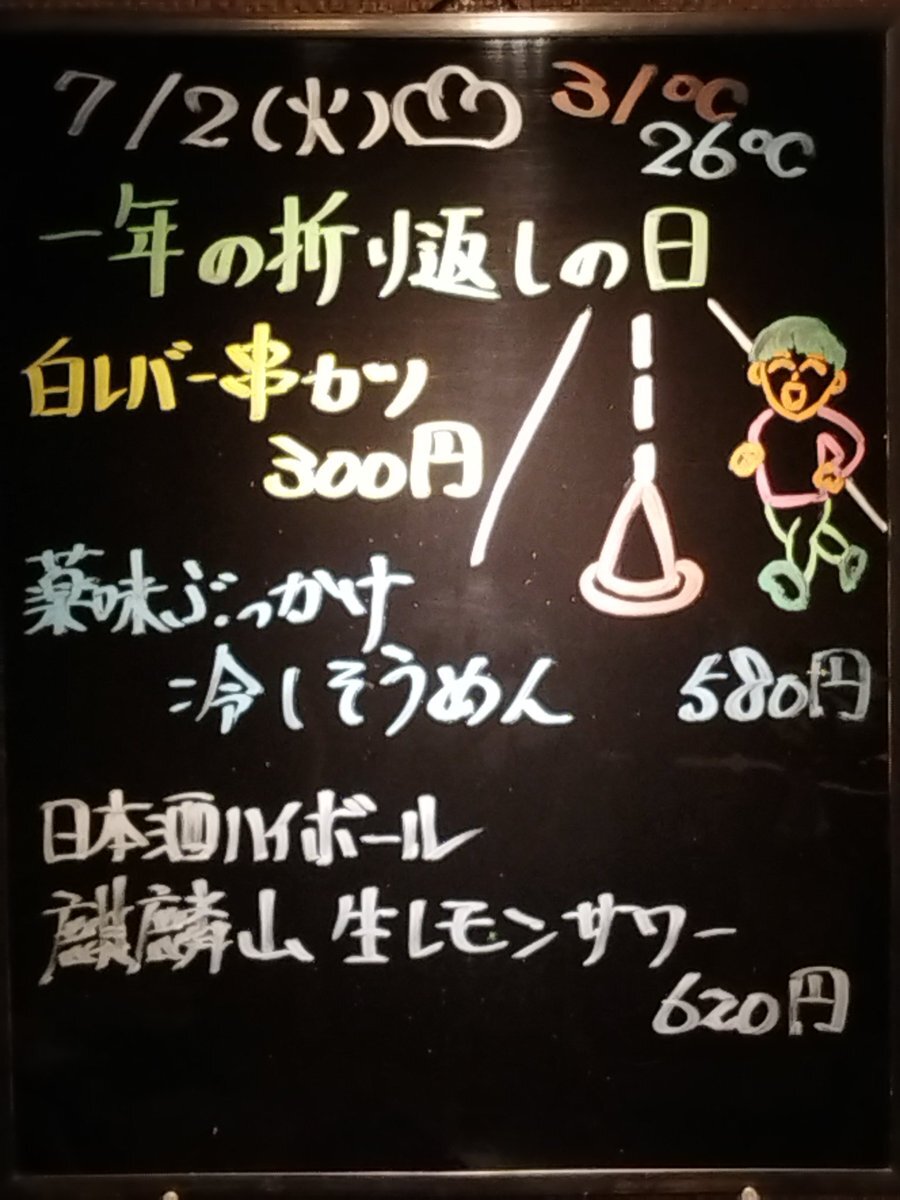 7/2(火) 31℃
26℃
一年の折り返しの日
白レバー串カツ
300円
薬味ぶっかけ
冷しそうめん 580円
日本酒ハイボール
麒麟山 生レモンサワー
620円